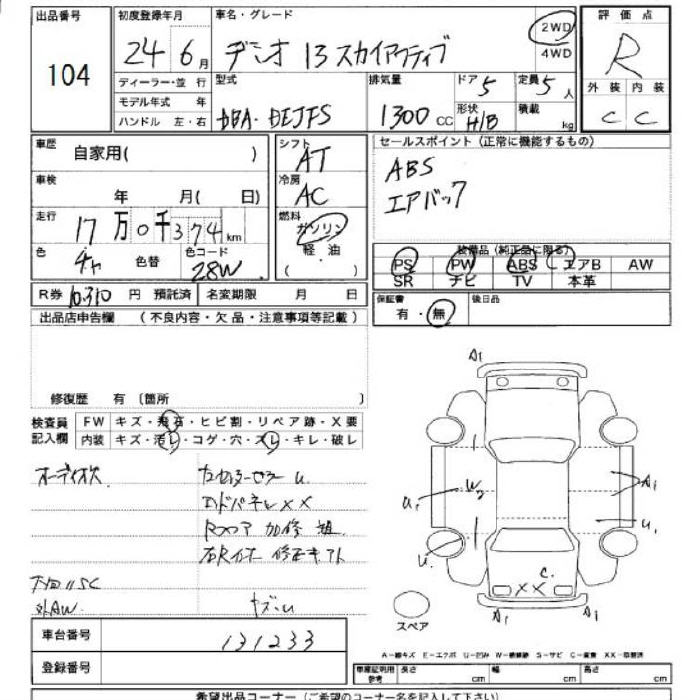 出品番号 初度登録年月 車名・グレード 評価点
104 24 6月 デミオ 13 スカイアクティブ 2WD 4WD R
ディーラー・並行 型式 排気量 ドア 定員 外装 内装
モデル年式 年 5 5人 C C
ハンドル 左・右 DBA-DEJFS 1300 CC 形状 H/B 積載 kg
車歴 自家用( ) シフト AT セールスポイント (正常に機能するもの)
車検 年 月( 日) 冷房 AC ABS
エアバッグ
走行 17万0千374km 燃料 ガソリン 軽・油 ( )
色 チャ 色替 色コード 28W 装備品 (純正品に限る)
PS PW ABS エアB AW
SR ナビ TV 本革
R券 10.310 円 預託済 名変期限 月 日 保証書 有・無 後日品
出品店申告欄 (不良内容・欠品・注意事項等記載)
修復歴 有 〔箇所 〕
検査員記入欄 FW キズ・飛石・ヒビ割・リペア跡・X要
内装 キズ・汚レ・コゲ・穴・スレ・キレ・破レ
オーディオ欠
エンドパネルXX
外AW
A1
A1
U1 W2
U1
U.
C.
XX
A1 A1
スペア
車台番号 131233
登録番号
車庫証明用参考 長さ cm 幅 cm 高さ cm
希望出品コーナー (ご希望のコーナー名を記入して下さい)